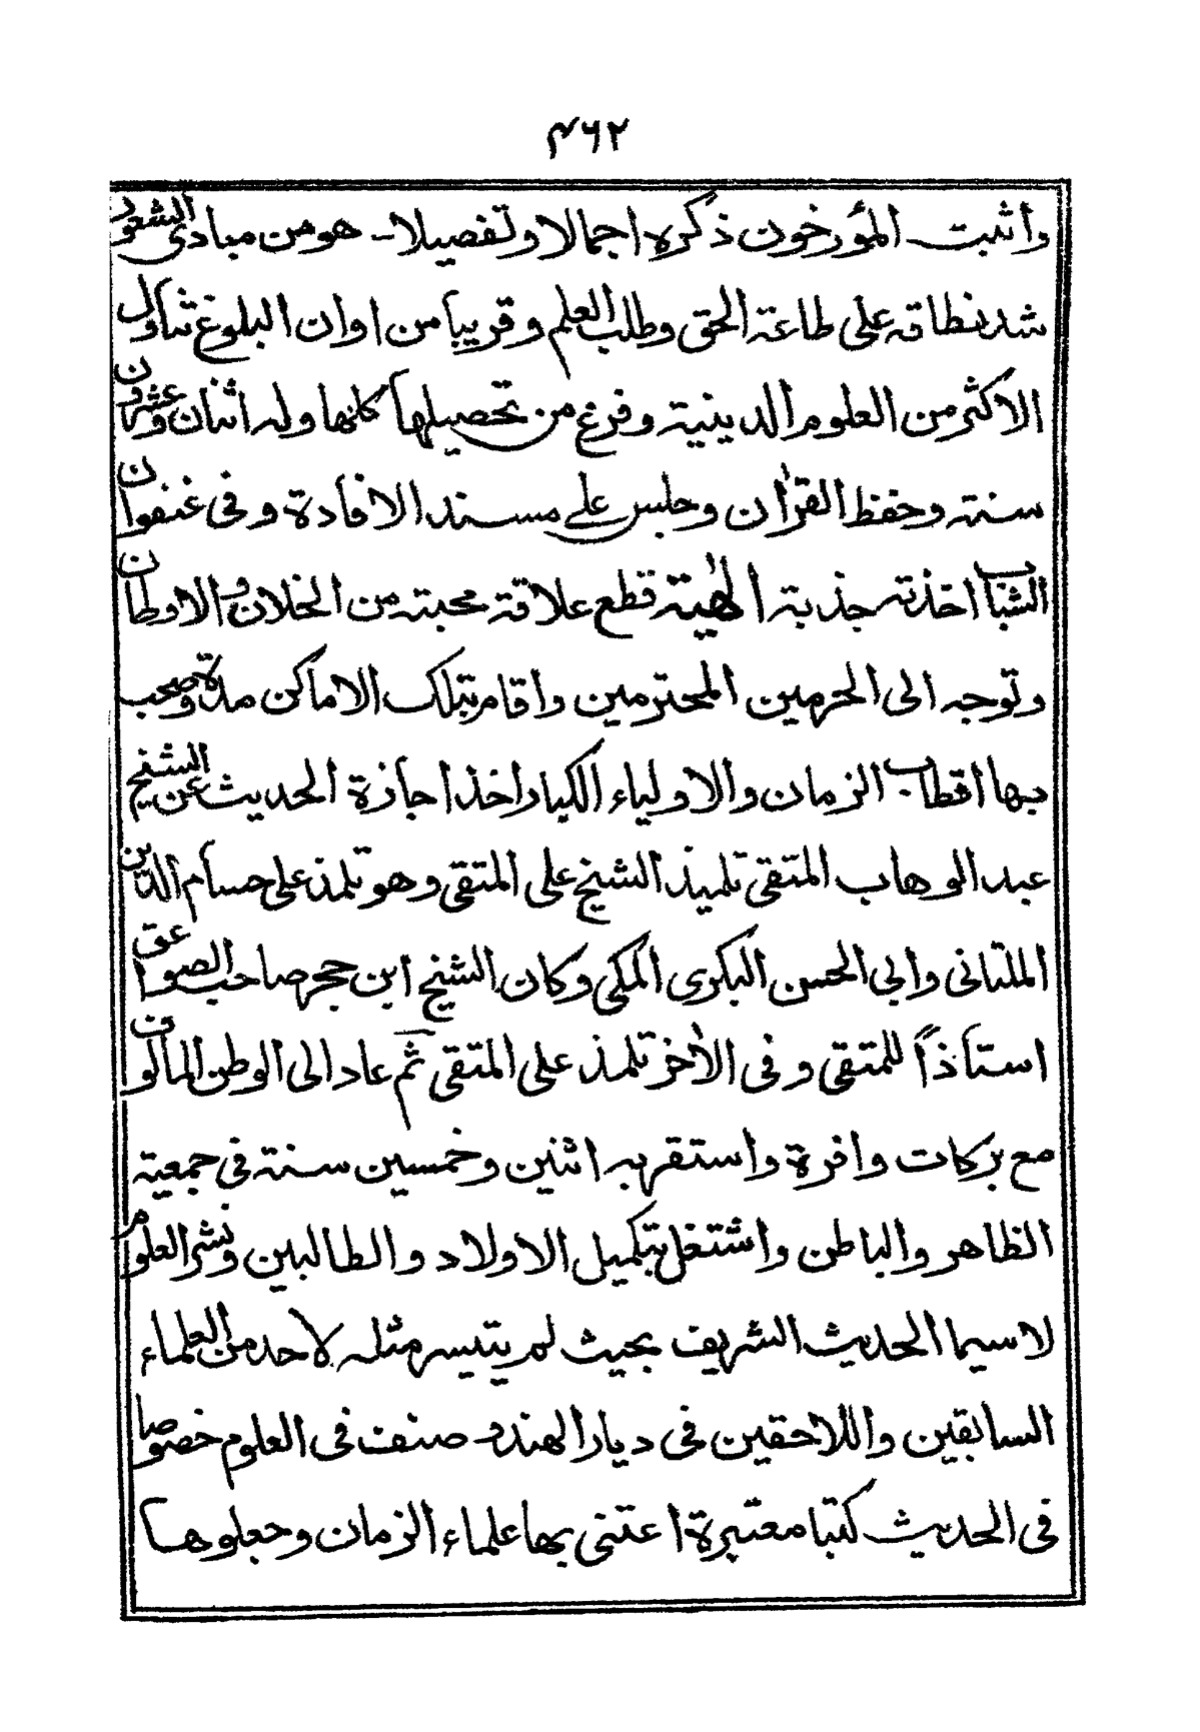 ۴۶۲
واثبت المؤرخون ذكره اجمالا وتفصيلا۔ هو من مبادى الشعور
شد نطاقه على طاعة الحق وطلب العلم وقريبا من اوان البلوغ تناول
الاكثر من العلوم الدينية وفرغ من تحصيلها كلها وله اثنان وعشرون
سنة وحفظ القراٰن وجلس على مسند الافادة وفى عنفوان
الشباب اخذته جذبة الٰهية قطع علاقة محبته من الخلان والاوطان
وتوجه الى الحرمين المحترمين واقام بتلك الاماكن مدة وصحب
بها اقطاب الزمان والاولياء الكبار اخذ اجازة الحديث عن الشيخ
عبد الوهاب المتقى تلميذ الشيخ على المتقى وهو تلمذ على حسام الدين
الملتانى وابى الحسن البكرى المكى وكان الشيخ ابن حجر صاحب الصواعق
استاذاً للمتقى وفى الاٰخر تلمذ على المتقى ثم عاد الى الوطن المالوف
مع بركات وافرة واستقر به اثنين وخمسين سنة فى جمعية
الظاهر والباطن واشتغل بتكميل الاولاد والطالبين ونشر العلوم
لا سيما الحديث الشريف بحيث لم يتيسر مثله لاحد من العلماء
السابقين واللاحقين فى ديار الهند وصنف فى العلوم خصوصا
فى الحديث كتبا معتبرة اعتنى بها علماء الزمان وجعلوها